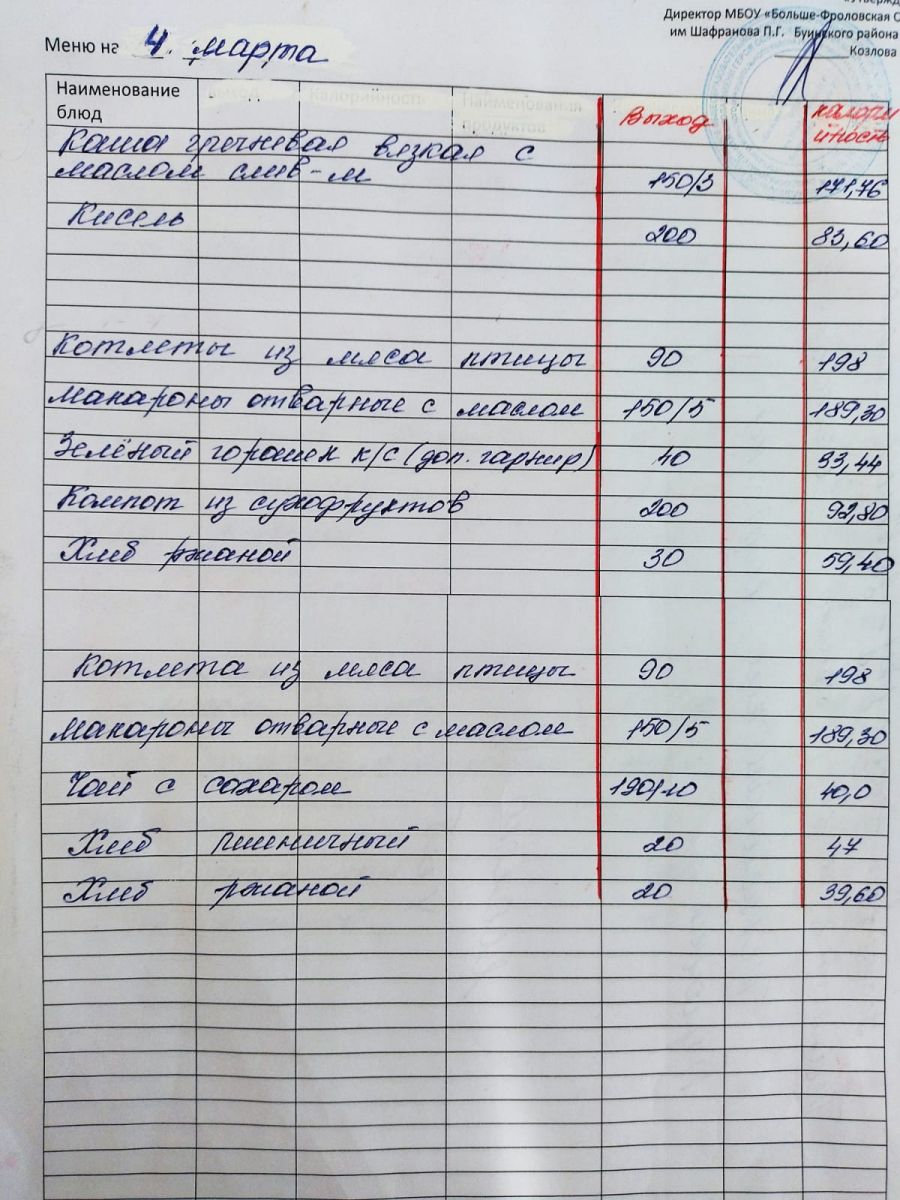 Директор МБОУ «Больше-Фроловская С
им Шафранова П.Г. Буинского района
Козлова
Меню на 4. марта
Наименование блюд Выход калорийность
Каша гречневая вязкая с
маслом слив-м 150/3 171,76
Кисель 200 83,60
Котлеты из мяса птицы 90 198
Макароны отварные с маслом 150/5 189,30
Зелёный горошек к/с (доп. гарнир) 40 33,44
Компот из сухофруктов 200 92,80
Хлеб ржаной 30 59,40
Котлета из мяса птицы 90 198
Макароны отварные с маслом 150/5 189,30
Чай с сахаром 190/10 40,0
Хлеб пшеничный 20 47
Хлеб ржаной 20 39,60